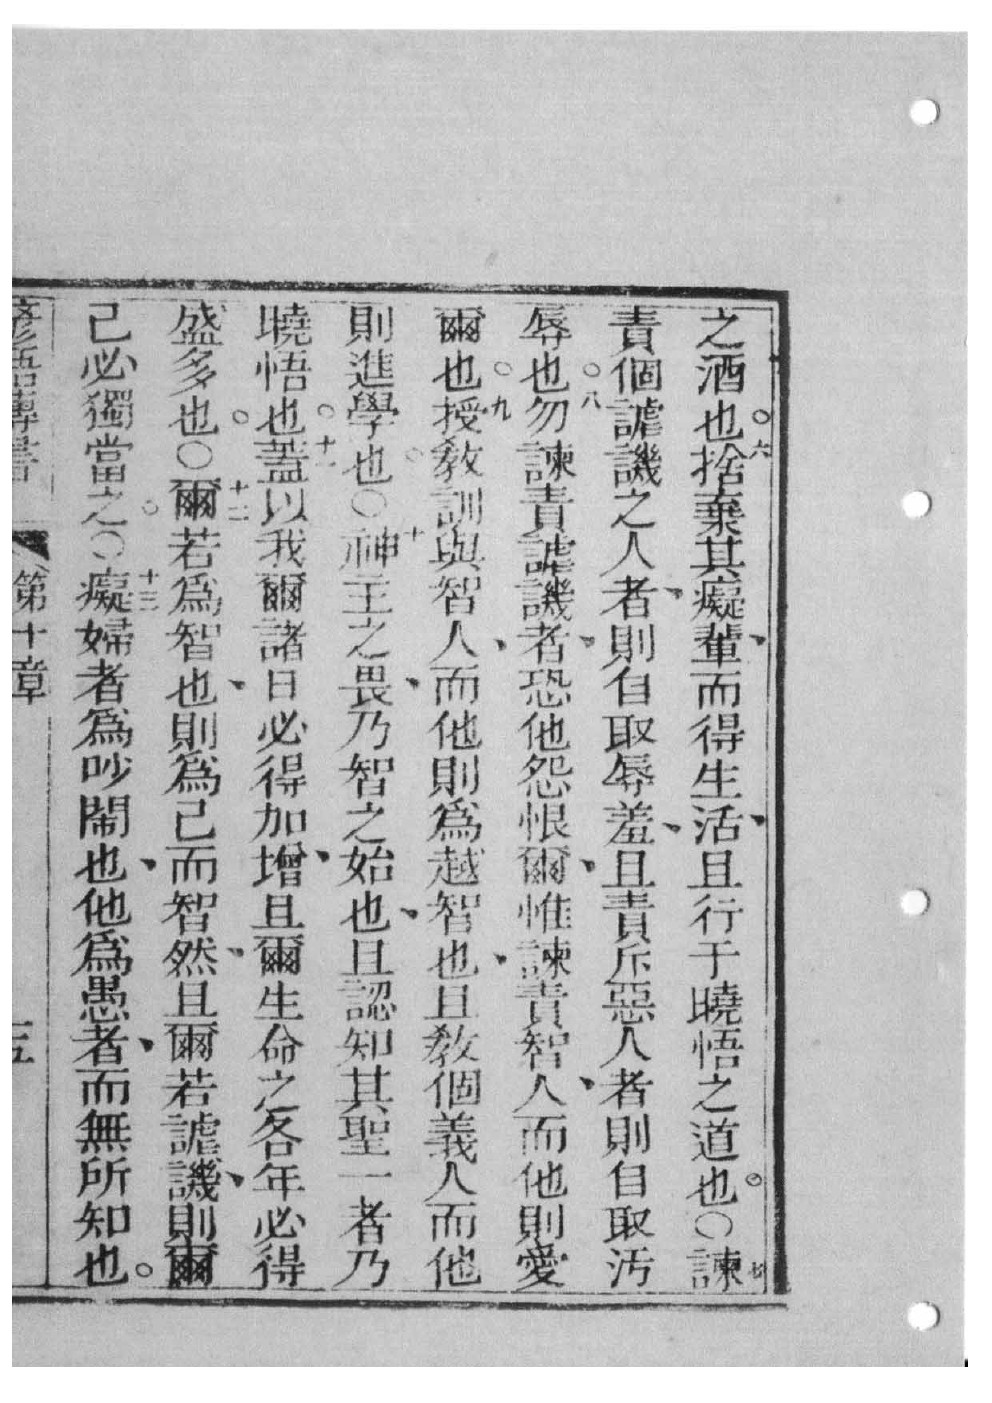 之酒也。六捨棄其癡輩、而得生活、且行于曉悟之道也。○七諫
責個謔譏之人者、則自取辱羞、且責斥惡人者則自取汚
辱也。八勿諫責謔譏者、恐他怨恨爾、惟諫責智人、而他則愛
爾也。九授敎訓與智人、而他則爲越智也、且敎個義人而他
則進學也。○十神主之畏、乃智之始也、且認知其聖一者乃
曉悟也。十一蓋以我爾諸日必得加增、且爾生命之各年必得
盛多也。○十二爾若爲智也、則爲己而智然、且爾若謔譏、則爾
己必獨當之。○十三癡婦者爲吵鬧也、他爲愚者、而無所知也。
諺語傳書 第十章 五